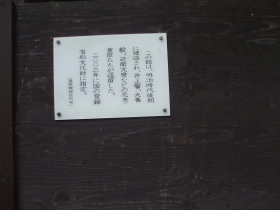 この館は、明治時代後期
に建造され、井上馨、大養
毅、近衛文麿などの元老
重臣たちが逗留した。
二〇〇三年に国の登録
有形文化財に指定。